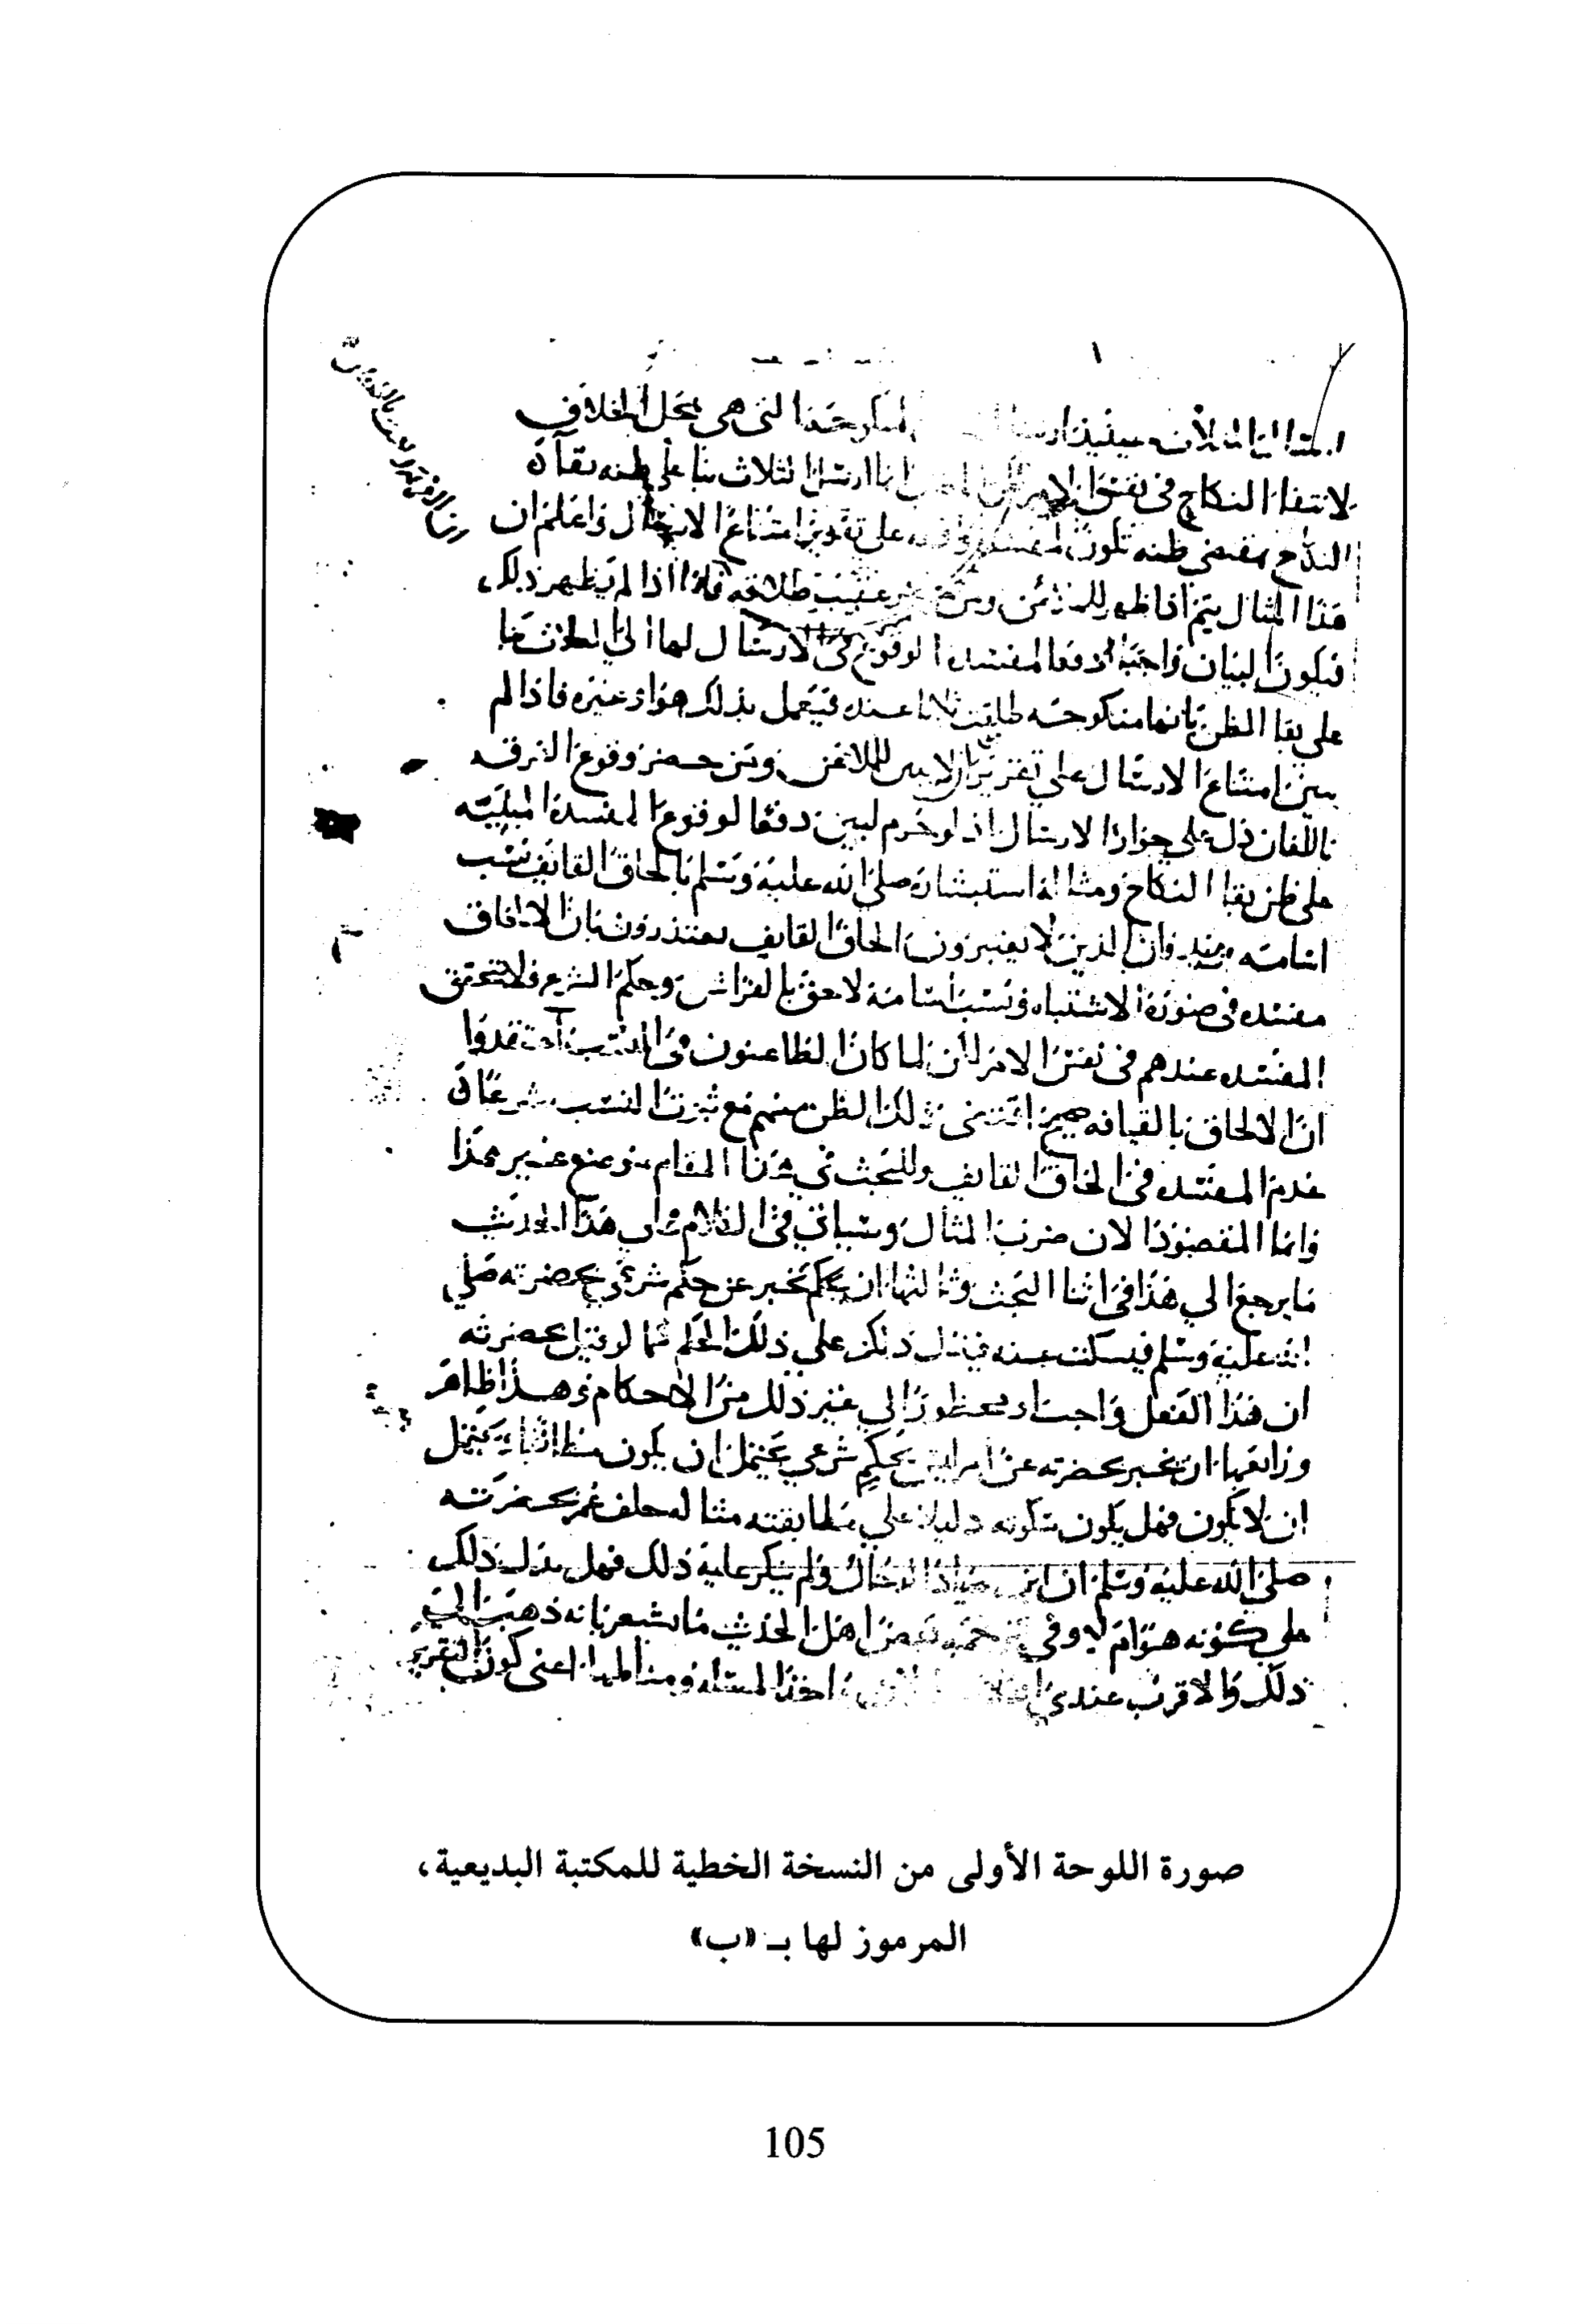 المنكوحة التي هي محل الخلاف
لانتفاء النكاح في نفس الامر ارسال الثلاث بنا على ظنه بقاء
النكاح بمقتضى ظنه تكون على تقدير امتناع الارسال واعلم ان
هذا المثال يتم اذا ظهر للملاعن ومن عقيب طلاقه فاذا اذا لم يظهر ذلك
فيكون البيان واجبا دفعا لمفسده الوقوع في الارسال لها الى
على بقا الظن بانها منكوحته طلقت ثلاثا عنده فيعمل بذلك هو او غيره فاذا لم
يبين امتناع الارسال على تقدير للملاعن ومن حضر وقوع الفرقه
باللعان دل على جواز الارسال اذ لو حرم لبين دفعا لوقوع المفسدة المبنيه
على ظن بقا النكاح ومثاله استبشاره صلى الله عليه وسلم بالحاق القايف نسب
اسامه بزيد فان الذين لا يعتبرون الحاق القايف يعتذرون بان الالحاق
مفسده في صورة الاشتباه ونسب اسامة لاحق بالفراش وحكم الشرع فلا تتحقق
المفسده عندهم في نفس الامر لأن لما كان الطاعنون في النسب اعتقدوا
ان الالحاق بالقيافه صحيح اقتضى ذلك الظن منهم مع ثبوت النسب شرعا
عدم المفسده في الحاق القايف وللبحث في هذا المقام موضع غير هذا
وانما المقصود الان ضرب المثال وسياتي في الكلام على هذا الحديث
ما يرجع الى هذا في اثنا البحث وثالثها ان يخبر عن حكم شرعي بحضرته صلى
الله عليه وسلم فيسكت عنه فيدل ذلك على ذلك الحكم كما لو قيل بحضرته
ان هذا الفعل واجب او محظور الى غير ذلك من الاحكام وهذا ظاهر
ورابعها ان يخبر بحضرته عن امر ليس بحكم شرعي يحتمل ان يكون مطابقا ويحتمل
ان لا يكون فهل يكون سكوته دليلا على مطابقته مثاله حلف عمر بحضرته
صلى الله عليه وسلم ان ابن صياد الدجال ولم ينكر عليه ذلك فهل يدل ذلك
على كونه هو ام لا وفي ترجمة بعض اهل الحديث ما يشعر بانه ذهب الى
ذلك والاقرب عندي ماخذ المسئلة ومناطها اعني كون التقرير
صورة اللوحة الأولى من النسخة الخطية للمكتبة البديعية،
المرموز لها بـ «ب»
105